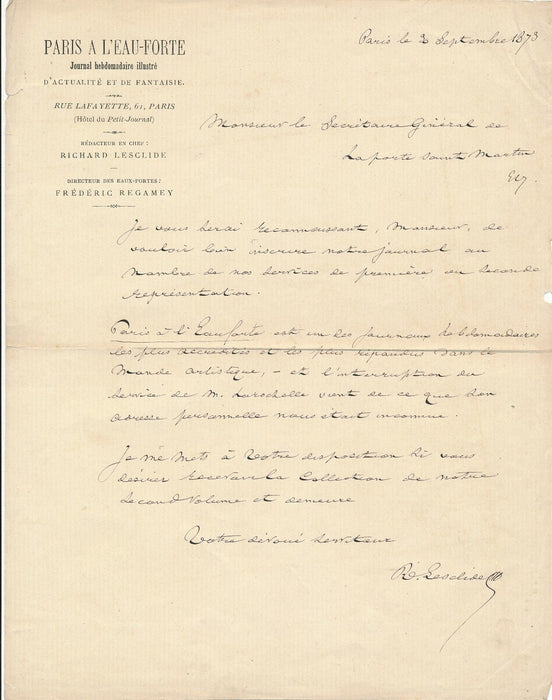 PARIS A L'EAU-FORTE
Journal hebdomadaire illustré
D'ACTUALITÉ ET DE FANTAISIE.
RUE LAFAYETTE, 61, PARIS
(Hôtel du Petit-Journal)
RÉDACTEUR EN CHEF :
RICHARD LESCLIDE
DIRECTEUR DES EAUX-FORTES :
FRÉDÉRIC REGAMEY
Paris le 3 Septembre 1873
Monsieur le Secrétaire Général de
La porte Saint Martin
Je vous serai reconnaissant, Monsieur, de
vouloir bien inscrire notre journal au
Nombre de nos Services de première ou Seconde
représentation.
Paris à l'Eau forte est un des journaux hebdomadaires
les plus accrédités et les plus répandus dans le
Monde artistique, - et l'interruption du
Service de M. Larochelle vient de ce que Son
adresse personnelle nous était inconnue.
Je me Mets à Votre disposition Si vous
désirez recevoir la Collection de notre
Second Volume et demeure
Votre dévoué Serviteur
Rd. Lesclide